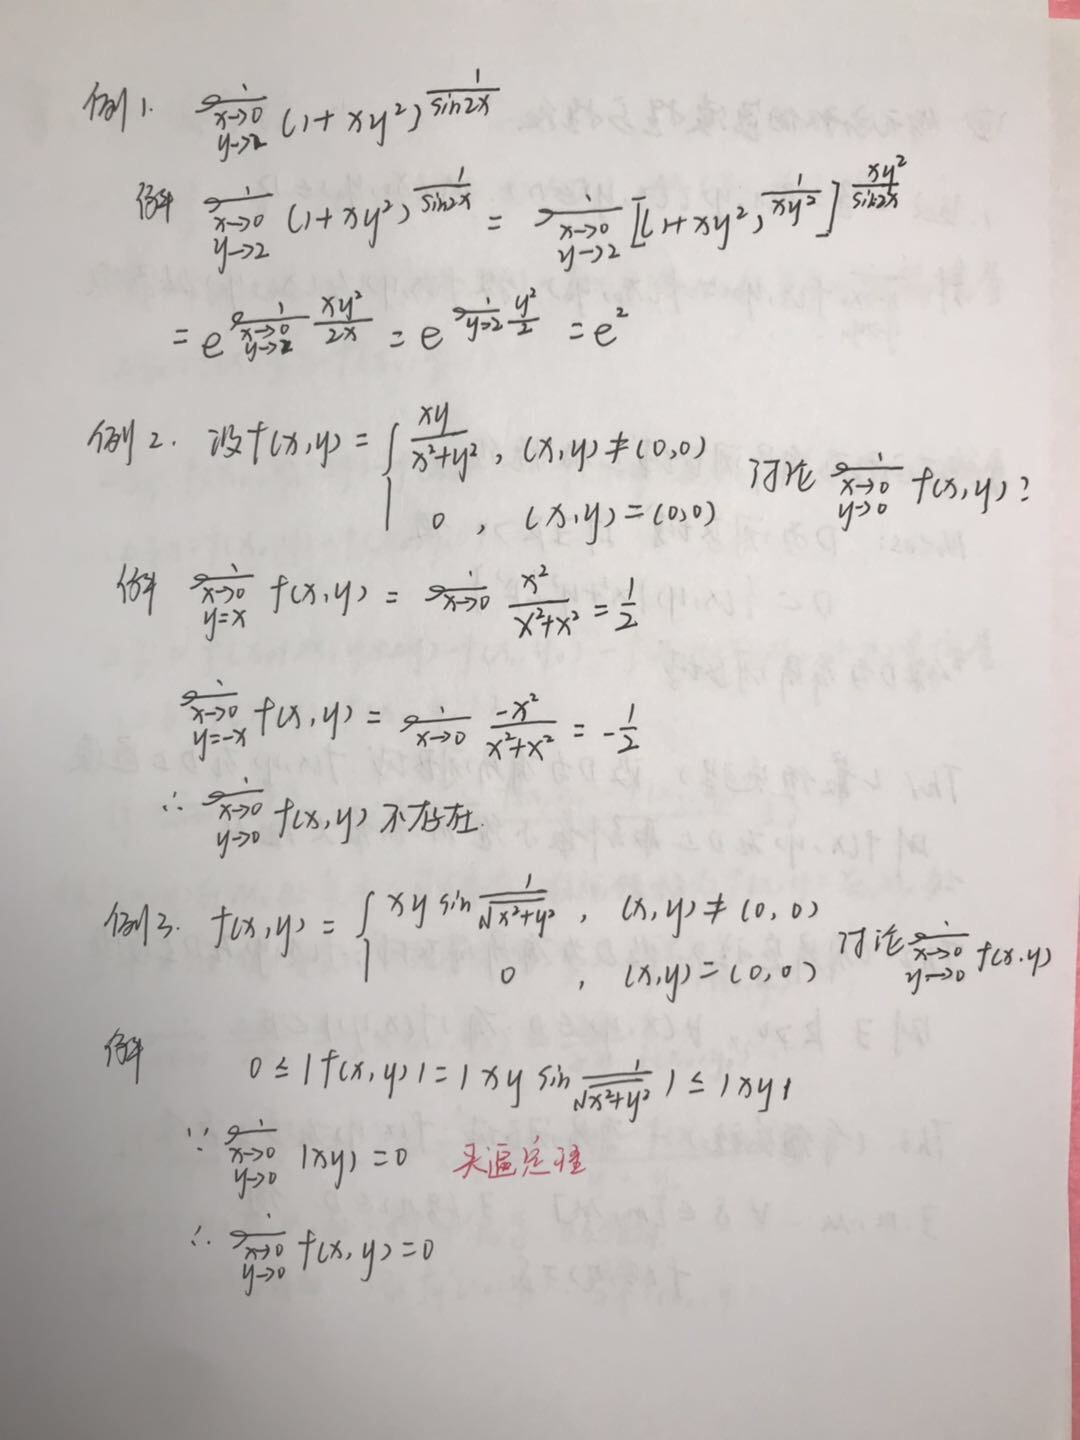 例1. lim x→0 y→2 (1+xy²)^(1/sin2x)
解 lim x→0 y→2 (1+xy²)^(1/sin2x) = lim x→0 y→2 [(1+xy²)^(1/xy²)]^(xy²/sin2x)
= e^(lim x→0 y→2 xy²/2x) = e^(lim y→2 y²/2) = e²
例2. 设f(x,y) = { xy/(x²+y²), (x,y)≠(0,0) 讨论 lim x→0 y→0 f(x,y)?
0, (x,y)=(0,0)
解 lim x→0 y=x f(x,y) = lim x→0 x²/(x²+x²) = 1/2
lim x→0 y=-x f(x,y) = lim x→0 -x²/(x²+x²) = -1/2
∴ lim x→0 y→0 f(x,y) 不存在.
例3. f(x,y) = { xy sin 1/√(x²+y²), (x,y)≠(0,0) 讨论 lim x→0 y→0 f(x,y)
0, (x,y)=(0,0)
解 0≤|f(x,y)|=|xy sin 1/√(x²+y²)|≤|xy|
∵ lim x→0 y→0 |xy|=0 夹逼定理
∴ lim x→0 y→0 f(x,y)=0